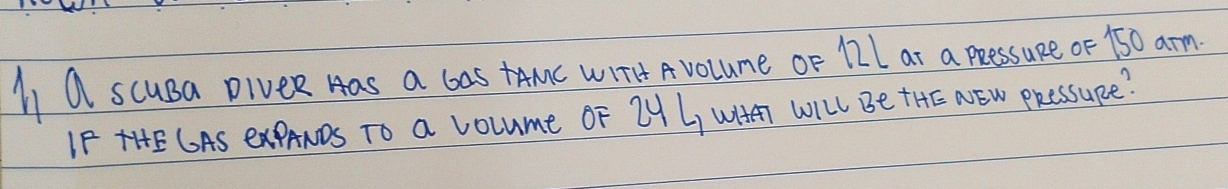 1, A SCUBA DIVER HAS a GAS TANC WITH A VOLUME OF 12L aT a PRESSURE OF 150 aTM.
IF THE GAS EXPANDS TO a VOLUME OF 24 L, WHAT WILL BE THE NEW PRESSURE?